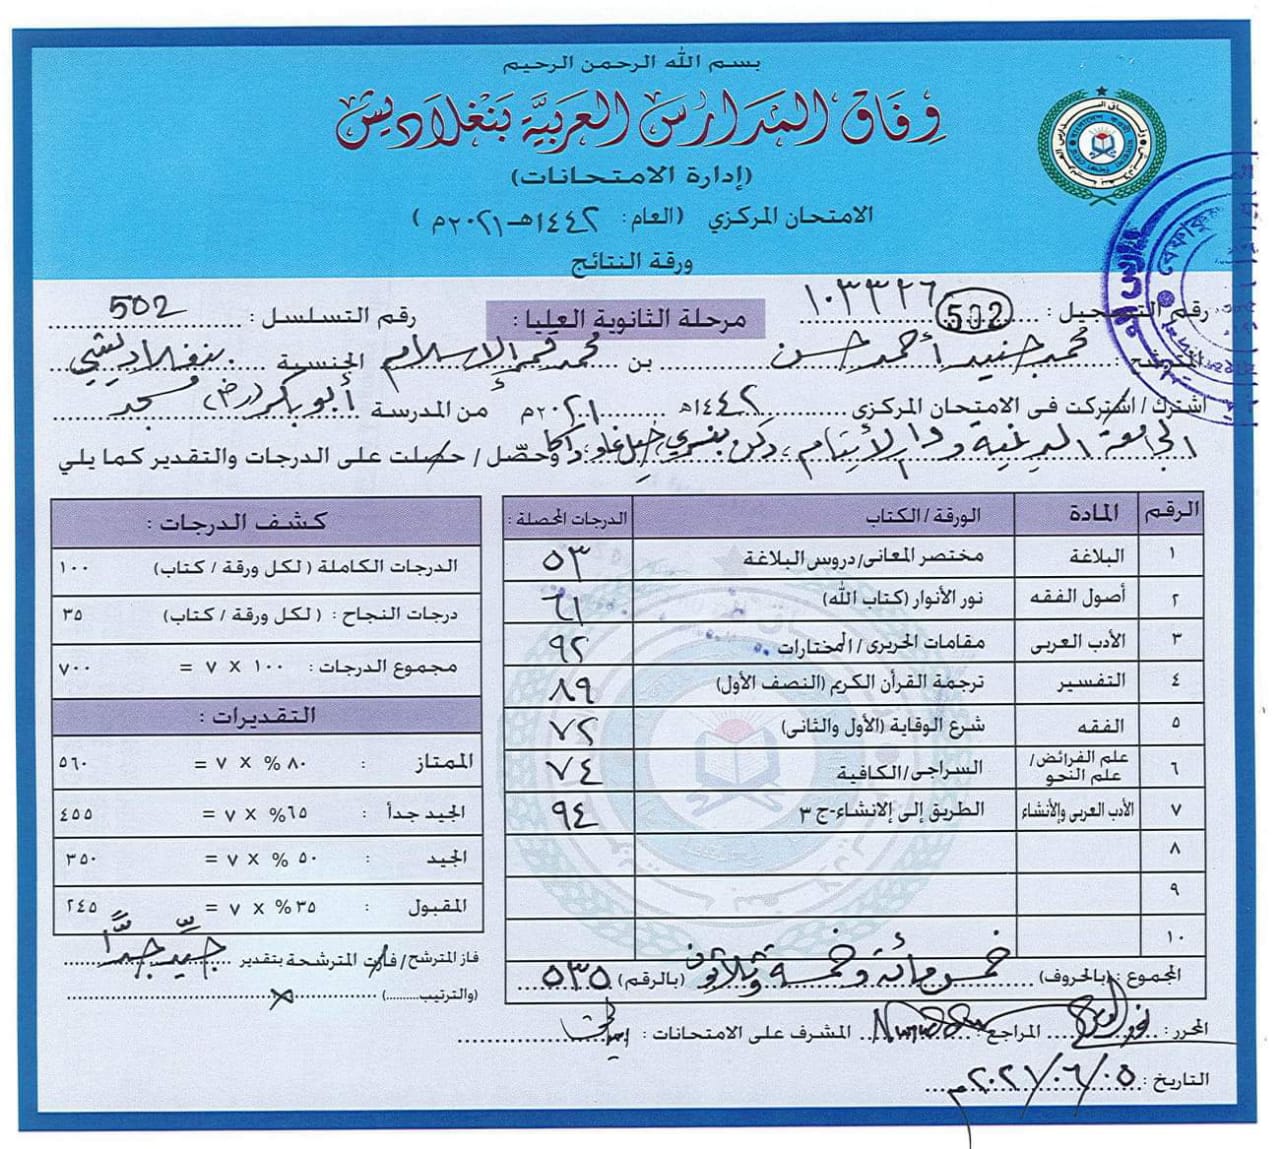 بسم الله الرحمن الرحيم
وفاق المدارس العربية بنغلاديش
(إدارة الامتحانات)
الامتحان المركزي (العام: ١٤٤٢هـ-٢٠٢١م)
ورقة النتائج
رقم التسجيل : ١٠٣٣٢٦ (502) مرحلة الثانوية العليا : رقم التسلسل : 502
المترشح : محمد جنيد أحمد حسن بن محمد قمر الإسلام الجنسية بنغلاديشي
اشترك / اشتركت فى الامتحان المركزى ١٤٤٢هـ ٢٠٢١م من المدرسة أبو بكر (رض) مسجد
الجامعة الدينية ودار الأيتام، دكن داكا وحصّل / حصلت على الدرجات والتقدير كما يلي
الرقم المادة الورقة / الكتاب الدرجات المحصلة :
١ البلاغة مختصر المعانى/دروس البلاغة ٥٣
٢ أصول الفقه نور الأنوار (كتاب الله) ٦١
٣ الأدب العربى مقامات الحريرى / المختارات ٩٢
٤ التفسير ترجمة القرأن الكريم (النصف الأول) ٨٩
٥ الفقه شرع الوقاية (الأول والثانى) ٧٢
٦ علم الفرائض/ علم النحو السراجى/الكافية ٧٤
٧ الأدب العربى والأنشاء الطريق إلى إلانشاء-ج ٣ ٩٤
٨
٩
١٠
المجموع : بالحروف) خمس مائة وخمسة وثلاثون (بالرقم) ٥٣٥
كشف الدرجات :
الدرجات الكاملة ( لكل ورقة / كتاب) ١٠٠
درجات النجاح : ( لكل ورقة / كتاب) ٣٥
مجموع الدرجات : ١٠٠ X ٧ = ٧٠٠
التقديرات :
الممتاز : ٨٠ % X ٧ = ٥٦٠
الجيد جدأ : ٦٥% X ٧ = ٤٥٥
الجيد : ٥٠ % X ٧ = ٣٥٠
المقبول : ٣٥% X ٧ = ٢٤٥
فاز المترشح / فازت المترشحة بتقدير جيّد جدًّا
(والترتيب.........)
المحرر: المراجع : المشرف على الامتحانات :
التاريخ : ٠٥/٠٦/٢٠٢١م